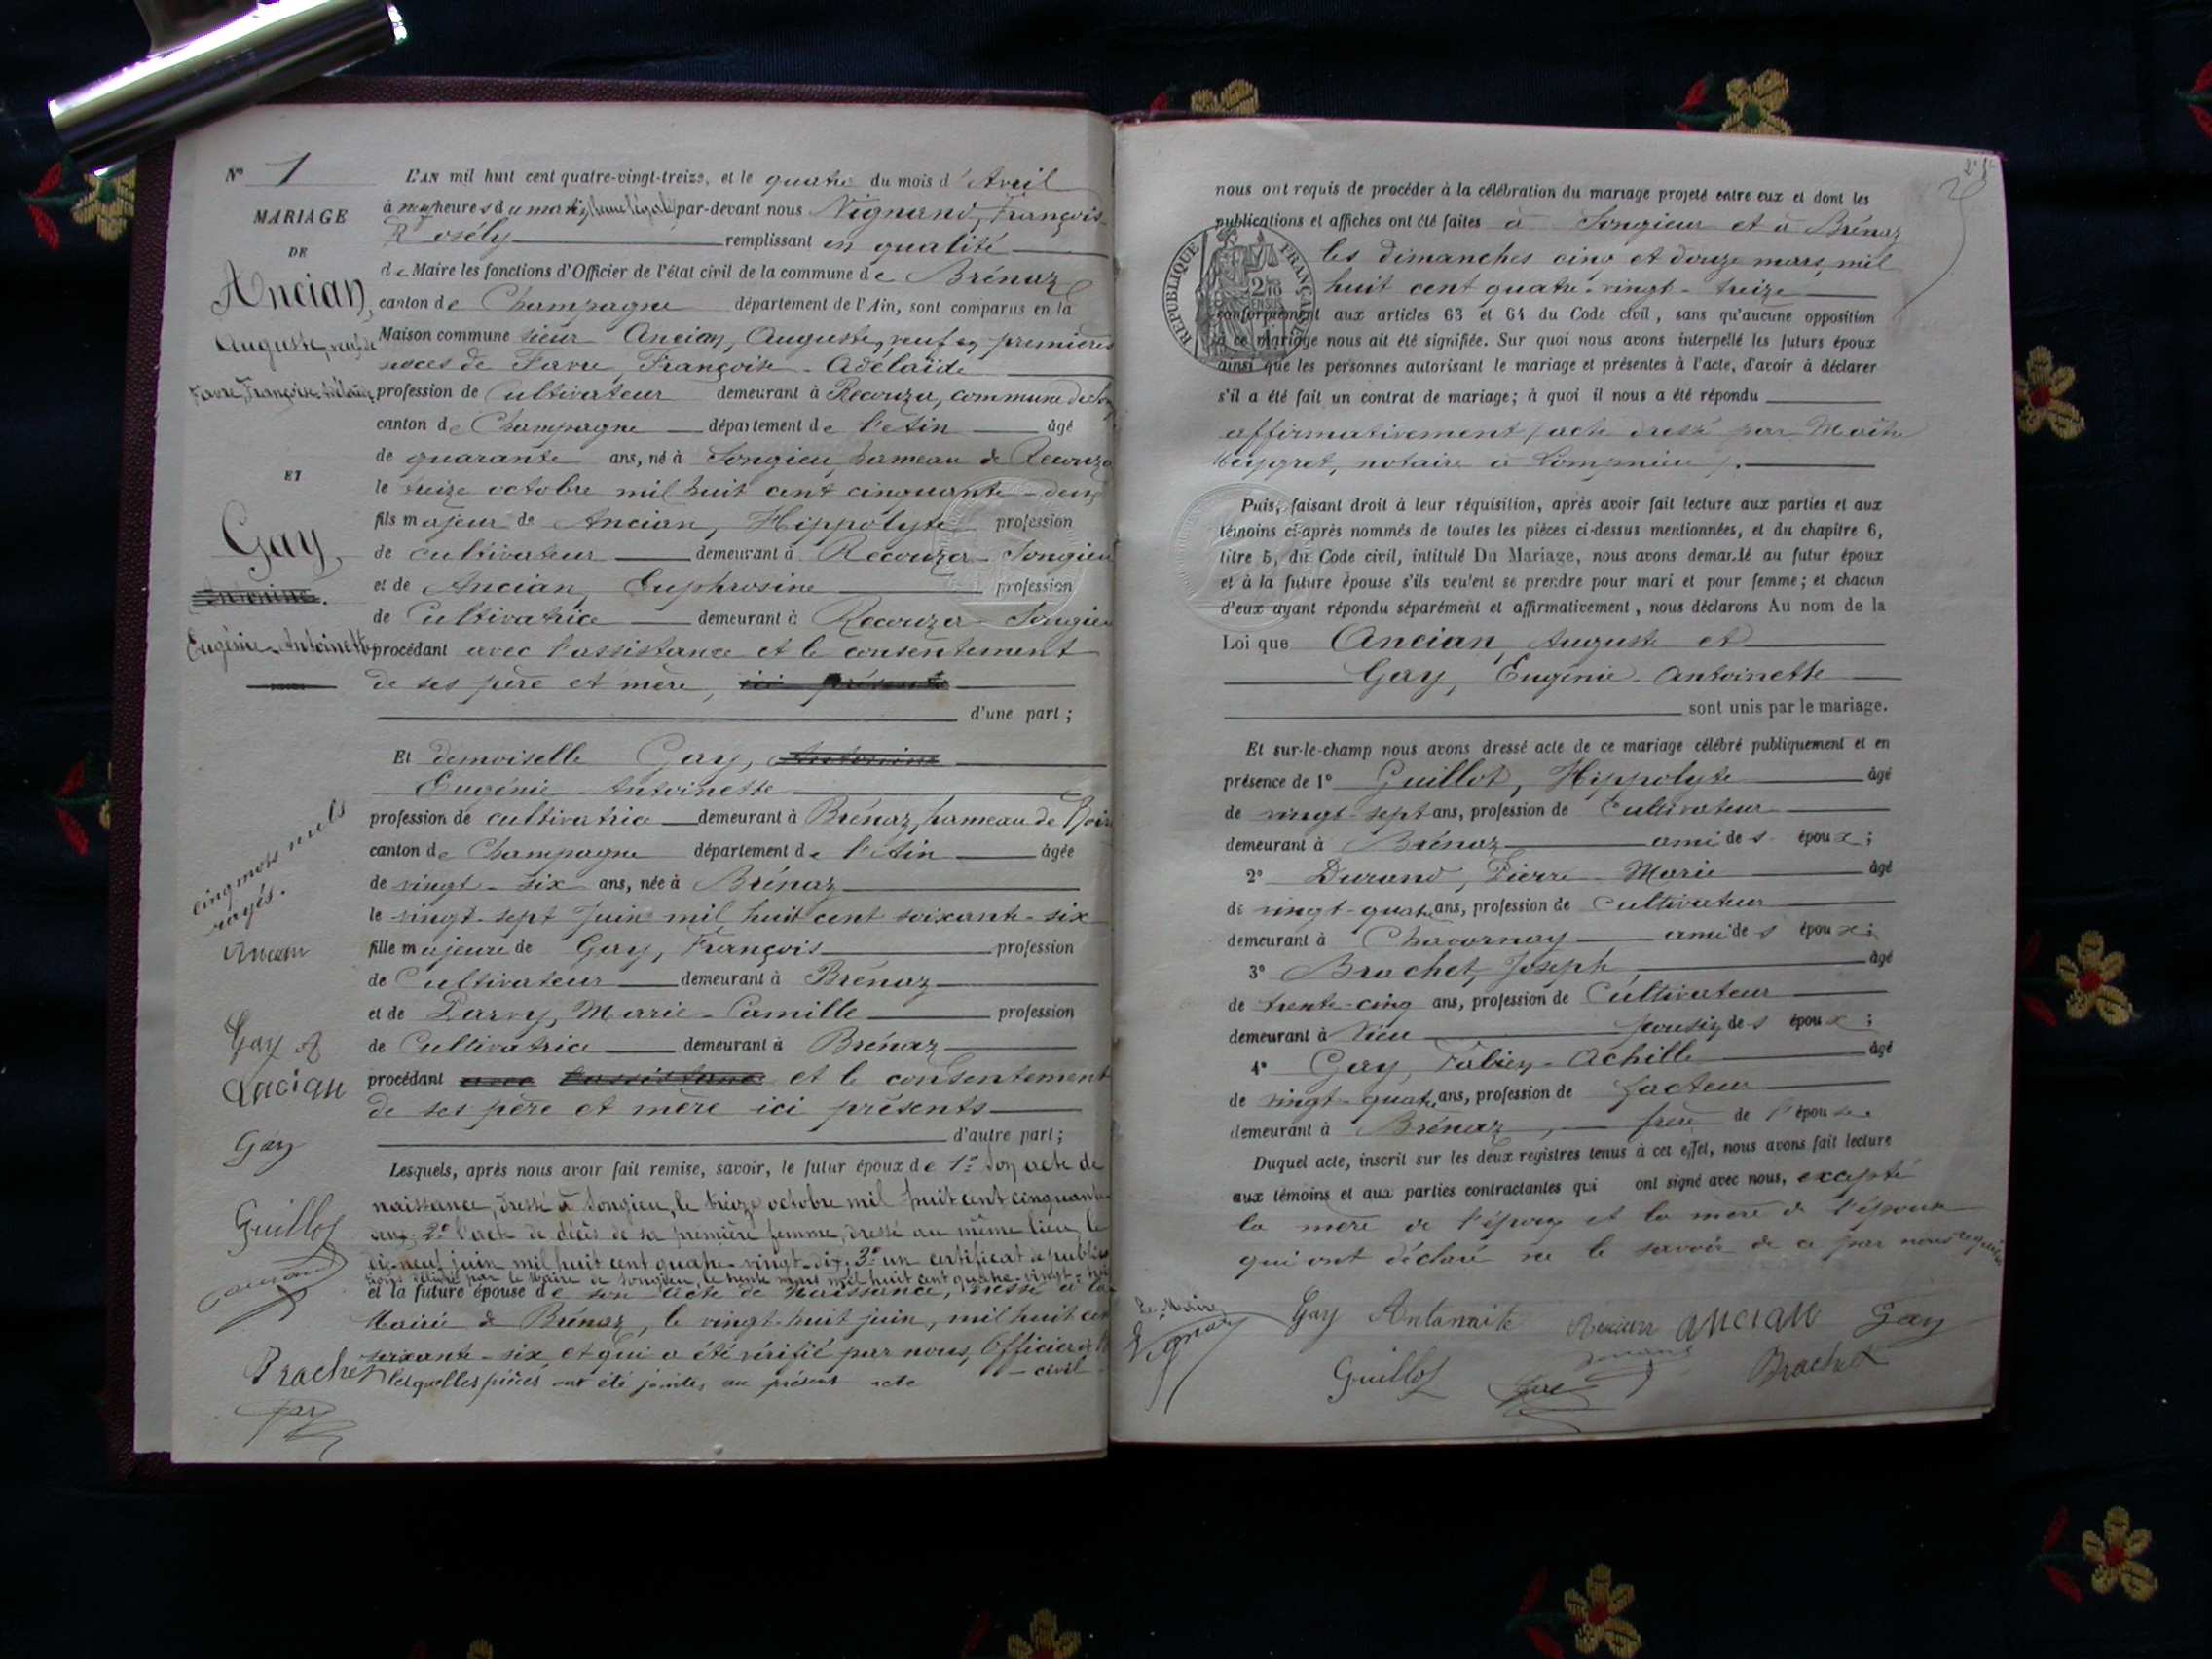 N° 1
MARIAGE
DE
Ancian,
Auguste, veuf de
Favre, Françoise-Adélaïde
ET
Gay,
Eugénie-Antoinette
cinq mots nuls
rayés.
Ancian
Gay A
Ancian
Gay
Guillot
Durand
Brachet
Gay
L'AN mil huit cent quatre-vingt-treize, et le quatre du mois d'Avril
à neuf heures du matin (heure légale) par-devant nous Vignand, François-
Rosély remplissant en qualité
de Maire les fonctions d'Officier de l'état civil de la commune de Brénaz
canton de Champagne département de l'Ain, sont comparus en la
Maison commune sieur Ancian, Auguste, veuf en premières
noces de Favre, Françoise-Adélaïde
profession de Cultivateur demeurant à Recouza, commune de Son
canton de Champagne département de l'Ain âgé
de quarante ans, né à Songieu, hameau de Recouza
le treize octobre mil huit cent cinquante-deux
fils majeur de Ancian, Hippolyte profession
de cultivateur demeurant à Recouza-Songieu
et de Ancian, Euphrosine profession
de Cultivatrice demeurant à Recouza-Songieu
procédant avec l'assistance et le consentement
de ses père et mère, ici présents
d'une part;
Et demoiselle Gay,
Eugénie-Antoinette
profession de cultivatrice demeurant à Brénaz, hameau de
canton de Champagne département de l'Ain âgée
de vingt-six ans, née à Brénaz
le vingt-sept Juin mil huit cent soixante-six
fille majeure de Gay, François profession
de Cultivateur demeurant à Brénaz
et de Darvy, Marie-Camille profession
de Cultivatrice demeurant à Brénaz
procédant avec l'assistance et le consentement
de ses père et mère ici présents
d'autre part;
Lesquels, après nous avoir fait remise, savoir, le futur époux de 1° son acte de
naissance, dressé à Songieu, le treize octobre mil huit cent cinquante-
deux; 2° l'acte de décès de sa première femme, dressé au même lieu, le
dix-neuf juin mil huit cent quatre-vingt-dix; 3° un certificat de publica
tions délivré par le Maire de Songieu, le trente mars mil huit cent quatre-vingt-treize
et la future épouse de son acte de naissance, dressé à la
Mairie de Brénaz, le vingt-huit juin, mil huit cent
soixante-six, et qui a été vérifié par nous, Officier de l'é
lesquelles pièces ont été jointes au présent acte civil
nous ont requis de procéder à la célébration du mariage projeté entre eux et dont les
publications et affiches ont été faites à Songieu et à Brénaz
les dimanches cinq et douze mars, mil
huit cent quatre-vingt-treize
conformément aux articles 63 et 64 du Code civil, sans qu'aucune opposition
à ce mariage nous ait été signifiée. Sur quoi nous avons interpellé les futurs époux
ainsi que les personnes autorisant le mariage et présentes à l'acte, d'avoir à déclarer
s'il a été fait un contrat de mariage; à quoi il nous a été répondu
affirmativement (acte dressé par Maître
notaire à Lompnieu).
RÉPUBLIQUE FRANÇAISE
Puis, faisant droit à leur réquisition, après avoir fait lecture aux parties et aux
témoins ci-après nommés de toutes les pièces ci-dessus mentionnées, et du chapitre 6,
titre 5, du Code civil, intitulé Du Mariage, nous avons demandé au futur époux
et à la future épouse s'ils veulent se prendre pour mari et pour femme; et chacun
d'eux ayant répondu séparément et affirmativement, nous déclarons Au nom de la
Loi que Ancian, Auguste et
Gay, Eugénie-Antoinette
sont unis par le mariage.
Et sur-le-champ nous avons dressé acte de ce mariage célébré publiquement et en
présence de 1° Guillot, Hippolyte âgé
de vingt-sept ans, profession de Cultivateur
demeurant à Brénaz ami des époux;
2° Durand, Pierre-Marie âgé
de vingt-quatre ans, profession de Cultivateur
demeurant à Chavornay ami des époux;
3° Brachet, Joseph, âgé
de trente-cinq ans, profession de Cultivateur
demeurant à Vieu cousin des époux;
4° Gay, Fabien-Achille âgé
de vingt-quatre ans, profession de facteur
demeurant à Brénaz, frère de l'épouse
Duquel acte, inscrit sur les deux registres tenus à cet effet, nous avons fait lecture
aux témoins et aux parties contractantes qui ont signé avec nous, excepté
la mère de l'époux et la mère de l'épouse
qui ont déclaré ne le savoir de ce par nous requises
Le Maire
Vignand
Gay Antonnite Ancian ANCIAN Gay
Guillot Durand Brachet
Gay